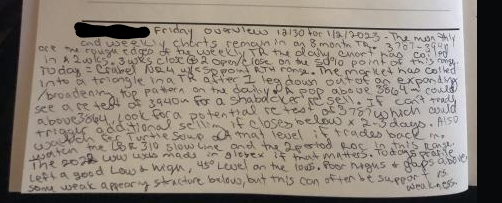 Friday overview 12/30 for 1/2/2023 - The monthly
and weekly charts remain in an 8 month TR. 3787-3940
are the rough edges of the weekly TR the daily chart has coiled
in 2 wks. 3 wks close @ 2 open/close on the 50% point of this range.
Today - 55pt RTH range. The market has coiled
into a triangle in a TR after a leg down out of an expanding
broadening top pattern on the daily. A pop above 3864 could
see a re test of 3940 for a sell. If can't ready
above 3864, look for a potential re test of 3787 which would
trigger additional selling if closes below 2-3 days. Also
watch for turtle soup at that level if trades back in.
watch the LBR 310 slow line and the 2 period ROC in this range.
The 2022 low was made in globex if that matters. Todays profile
left a good Low & high, 450 level on the lows. Poor highs & gaps above
some weak appearing structure below, but this can often be support vs
weakness.